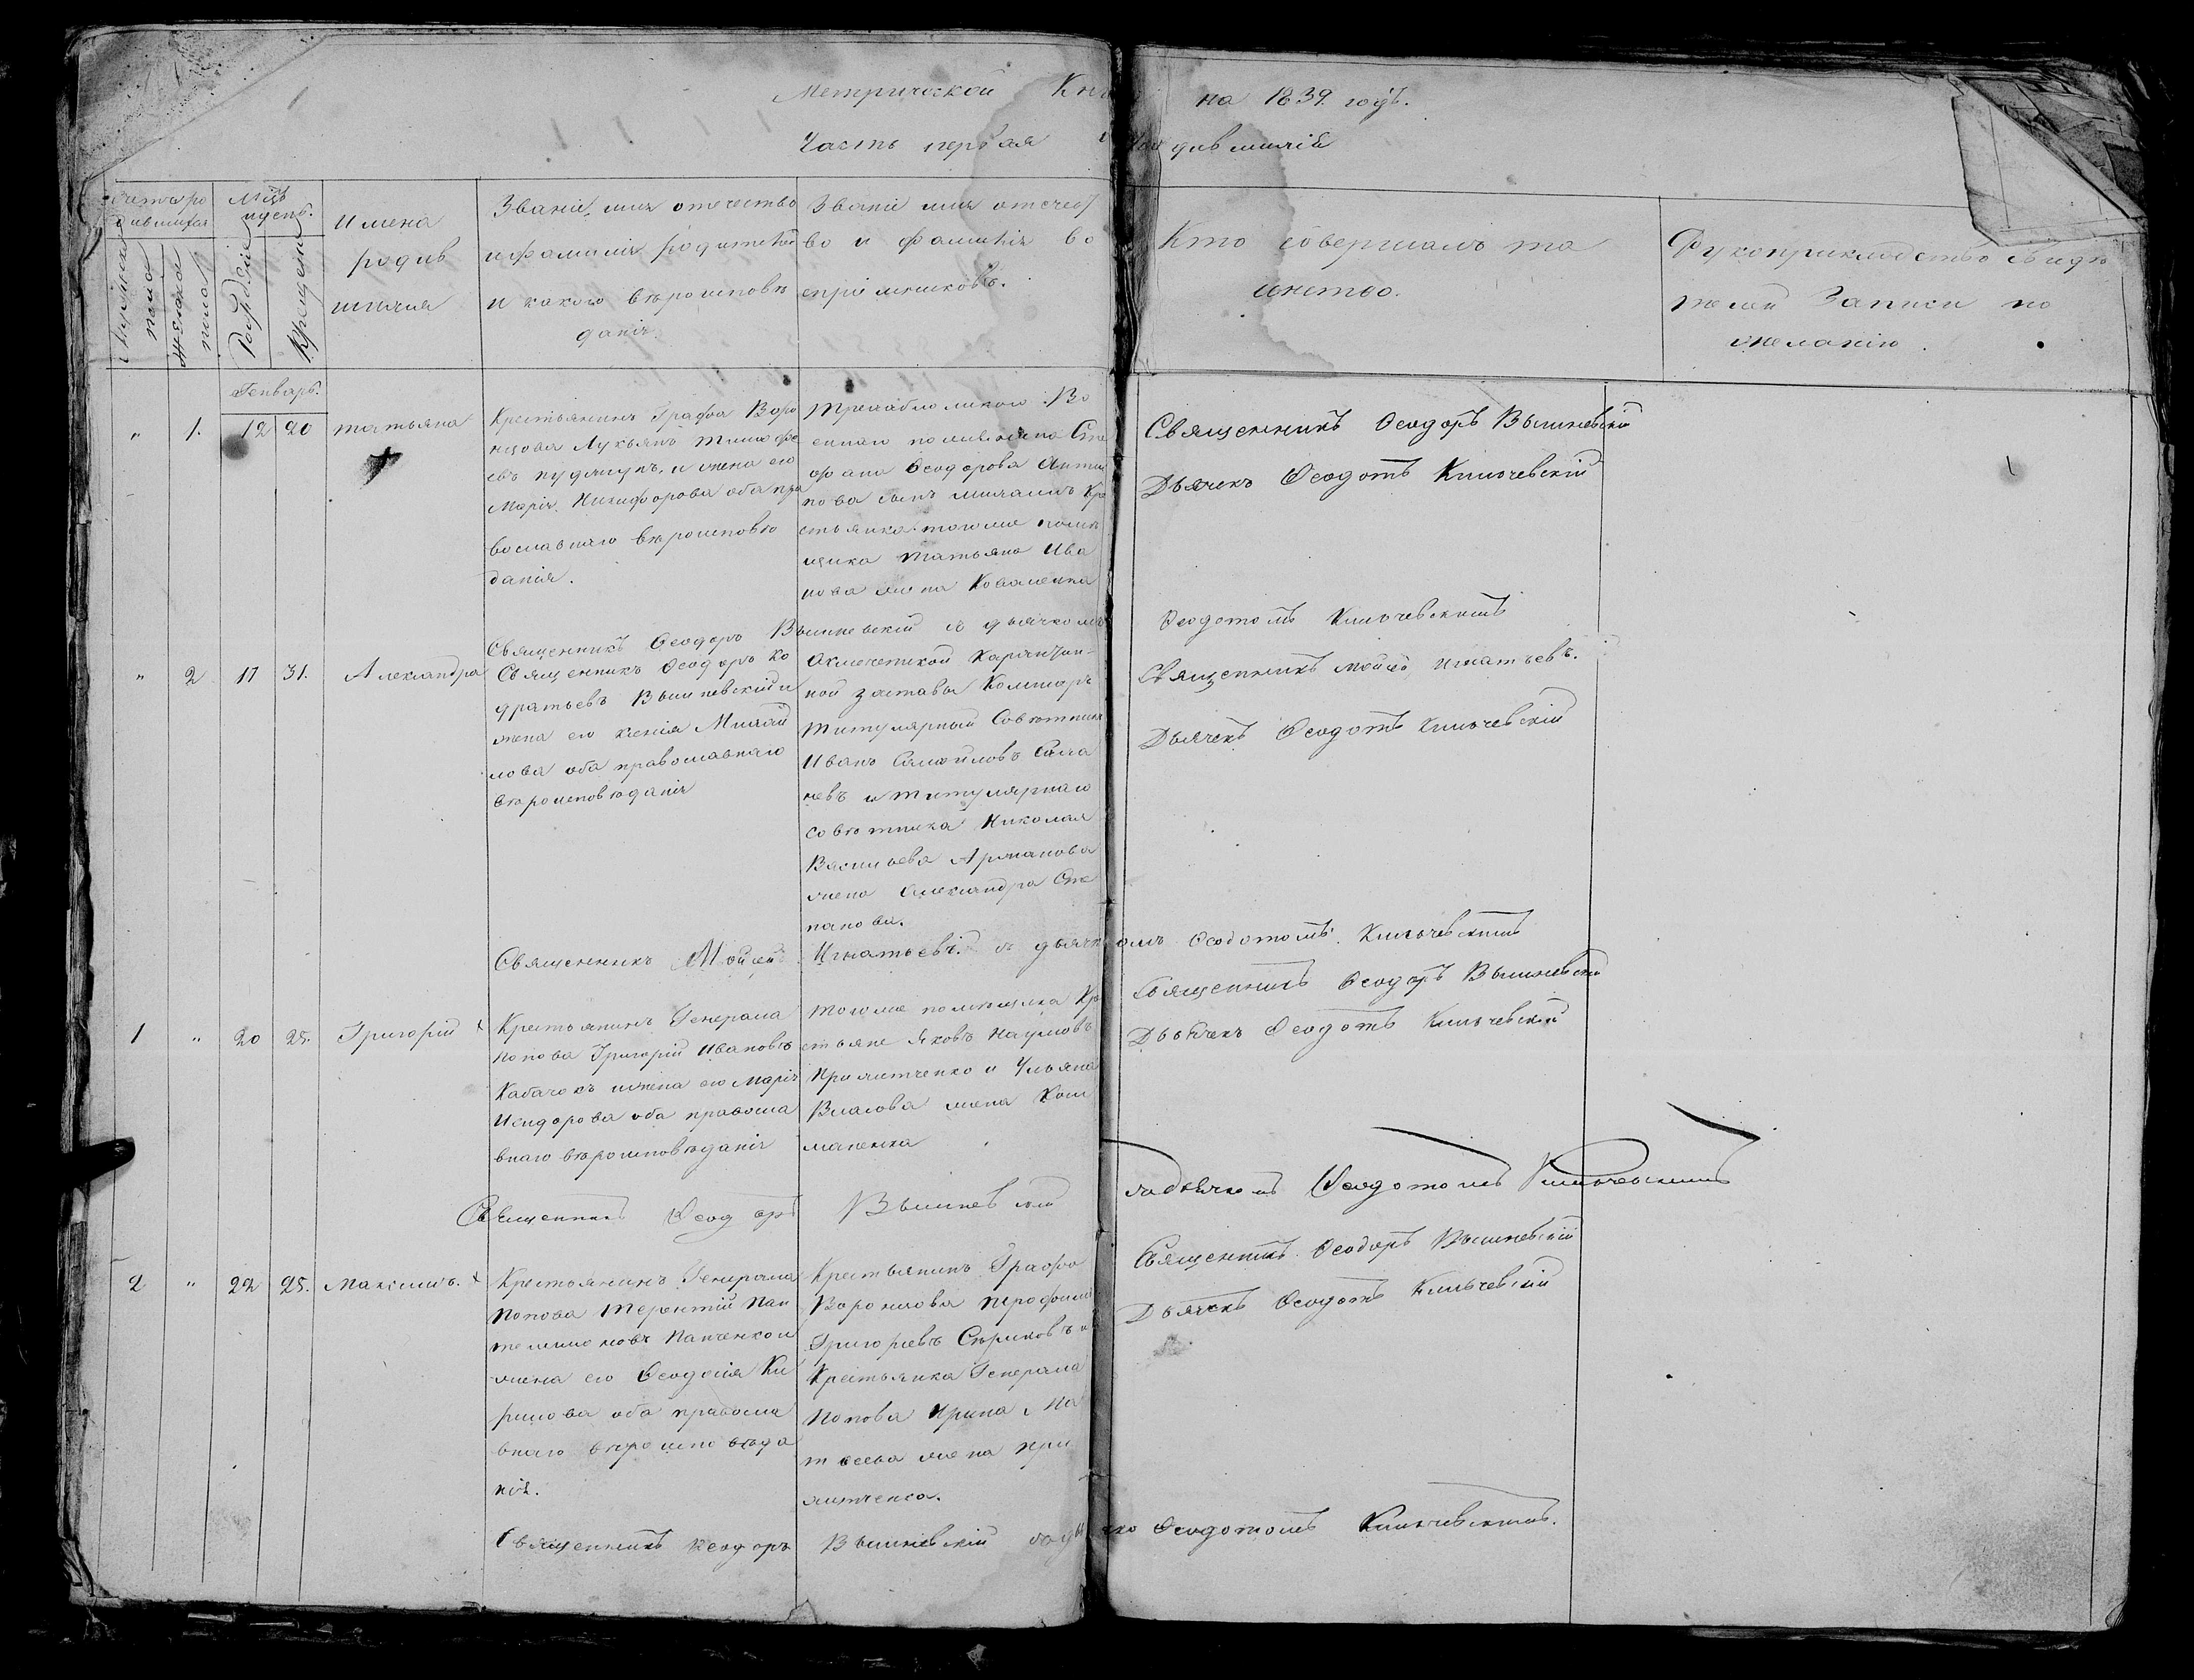 Метрической Кни на 1839 годъ.
Часть первая о родившихся
Счетъ ро
дившихся
Мужеска
пола
Женска
пола
Мѣсяцъ
и день.
Рожденія
Крещенія
Имена
родив
шихся
Званіе, имя отечество
и фамилія родителей
и какого вѣроисповѣ
данія
Званіе имя отечест
во и фамилія во
спріемниковъ.
Кто совершалъ та
инство.
Рукоприкладство свидѣ
телей записи по
желанію.
Генварь.
" 1. 12 20 татьяна
Крестьянинъ Графа Воро
нцова Лукьянъ тимофе
евъ и жена его
Марія Никифорова оба пра
вославнаго вѣроисповѣ
данія.
Сте
фана Феодорова
нова сынъ Кре
стьянка тогоже помѣ
щика татьяна Ива
нова жена Коваленка
Священникъ Феодоръ Вышневскій
Дьячекъ Феодотъ Кильчевскій
Священникъ Феодоръ Вышневскій съ дьячкомъ Феодотомъ Кильчевскимъ
" 2 17 31. Александра
Священникъ Феодоръ Ко
дратьевъ Вышневскій и
жена его Ксенія Михай
лова оба православнаго
вѣроисповѣданія
Акмечетской Карантин-
ной заставы
Титулярный Совѣтникъ
Иванъ Самойловъ
и титулярнаго
совѣтника Николая
Васильева
жена Александра Сте
панова.
Священникъ Мойсей Игнатьевъ.
Дьячекъ Феодотъ Кильчевскій
Священникъ Мойсей Игнатьевъ. съ дьячкомъ Феодотомъ Кильчевскимъ
1 " 20 25. Григорій
Крестьянинъ Генерала
Попова Григорій Ивановъ
Кабачокъ и жена его Марія
Исидорова оба правосла
внаго вѣроисповѣданія
тогоже помѣщика Кре
стьяне Яковъ Наумовъ
и Ульяна
Власова жена
Священникъ Феодоръ Вышневскій
Дьячекъ Феодотъ Кильчевскій
Священникъ Феодоръ Вышневскій здьячкомъ Феодотомъ Кильчевскимъ
2 " 22 25. Максимъ.
Крестьянинъ Генерала
Попова Терентій Пан
телимоновъ Панченко и
жена его Феодосія Ки
рилова оба правосла
внаго вѣроисповѣда
нія.
Крестьянинъ Графа
Воронцова
Григорьевъ и
Крестьянка Генерала
Попова Ирина Ма
твеева жена При
Священникъ Феодоръ Вышневскій
Дьячекъ Феодотъ Кильчевскій
Священникъ Феодоръ Вышневскій Феодотомъ Кильчевскимъ.